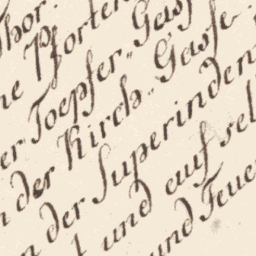 Thor.
ne Pforten
er Toepfer„ Gass
n der Kirch„ Gasse.
n der Superinden
t und auf sel
und Feue